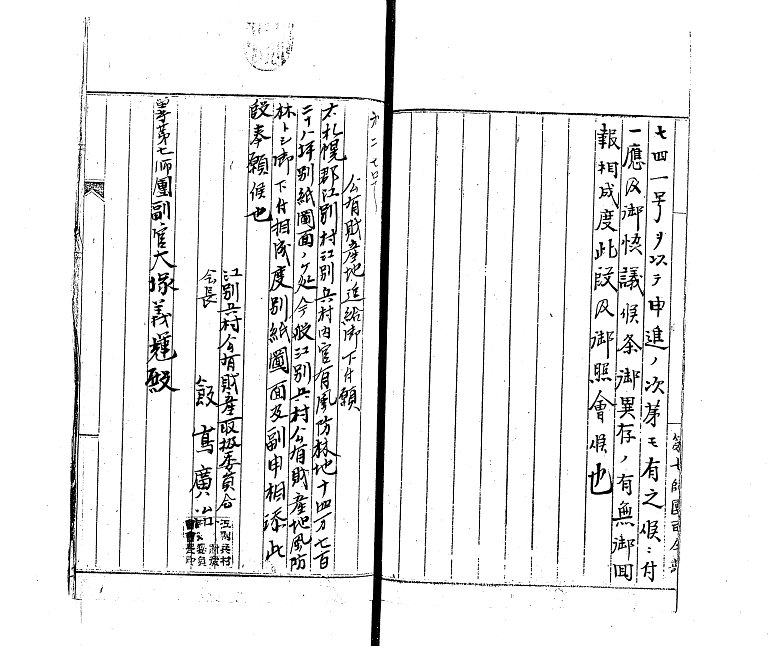 七四一号ヲ以テ申進ノ次第モ有之候ニ付
一應及御協議候条御異存ノ有無御回
報相成度此段及御照會候也
第七師團司令部
公有財産地追給御下付願
札幌郡江別村江別兵村内官有風防林地十四万七百
二十八坪別紙圖面ノケ処今般江別兵村公有財産地風防
林トシ御下付相成度別紙圖面及副申相添此
段奉願候也
江別兵村公有財産取扱委員会
会長
廣治
第七師團副官大塚義輝殿